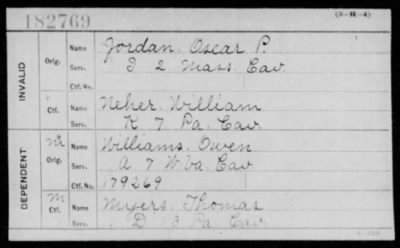 182769
(3—H—4)
INVALID
Orig.
Name Jordan Oscar P.
Serv. I 2 Mass. Cav.
Ctf. No.
Ctf.
Name Neher William
Serv. K 7 Pa. Cav.
DEPENDENT
Orig.
Name Williams. Owen
Serv. A 7 W.Va. Cav
Ctf. No. 179269
M Ctf.
Name Myers Thomas
Serv. D Pa. Cav.